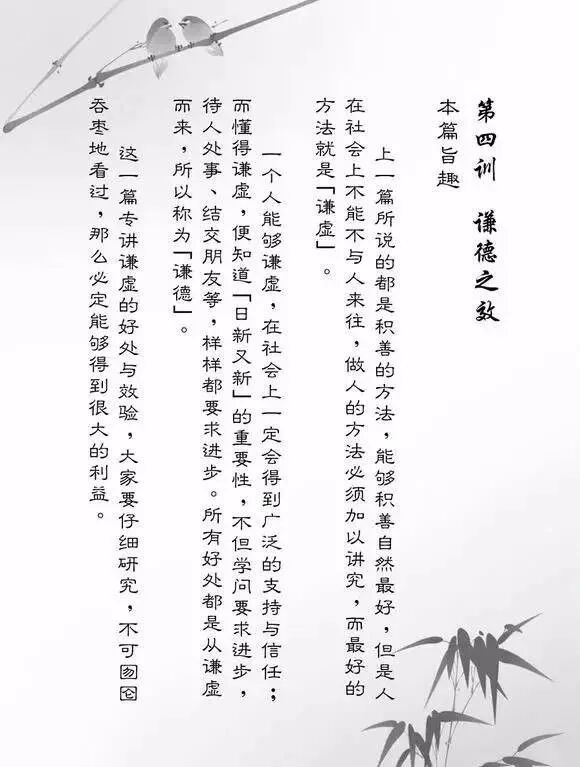 第四训　谦德之效
本篇旨趣
上一篇所说的都是积善的方法，能够积善自然最好，但是人
在社会上不能不与人来往，做人的方法必须加以讲究，而最好的
方法就是「谦虚」。
一个人能够谦虚，在社会上一定会得到广泛的支持与信任；
而懂得谦虚，便知道「日新又新」的重要性，不但学问要求进步，
待人处事、结交朋友等，样样都要求进步。所有好处都是从谦虚
而来，所以称为「谦德」。
这一篇专讲谦虚的好处与效验，大家要仔细研究，不可囫囵
吞枣地看过，那么必定能够得到很大的利益。